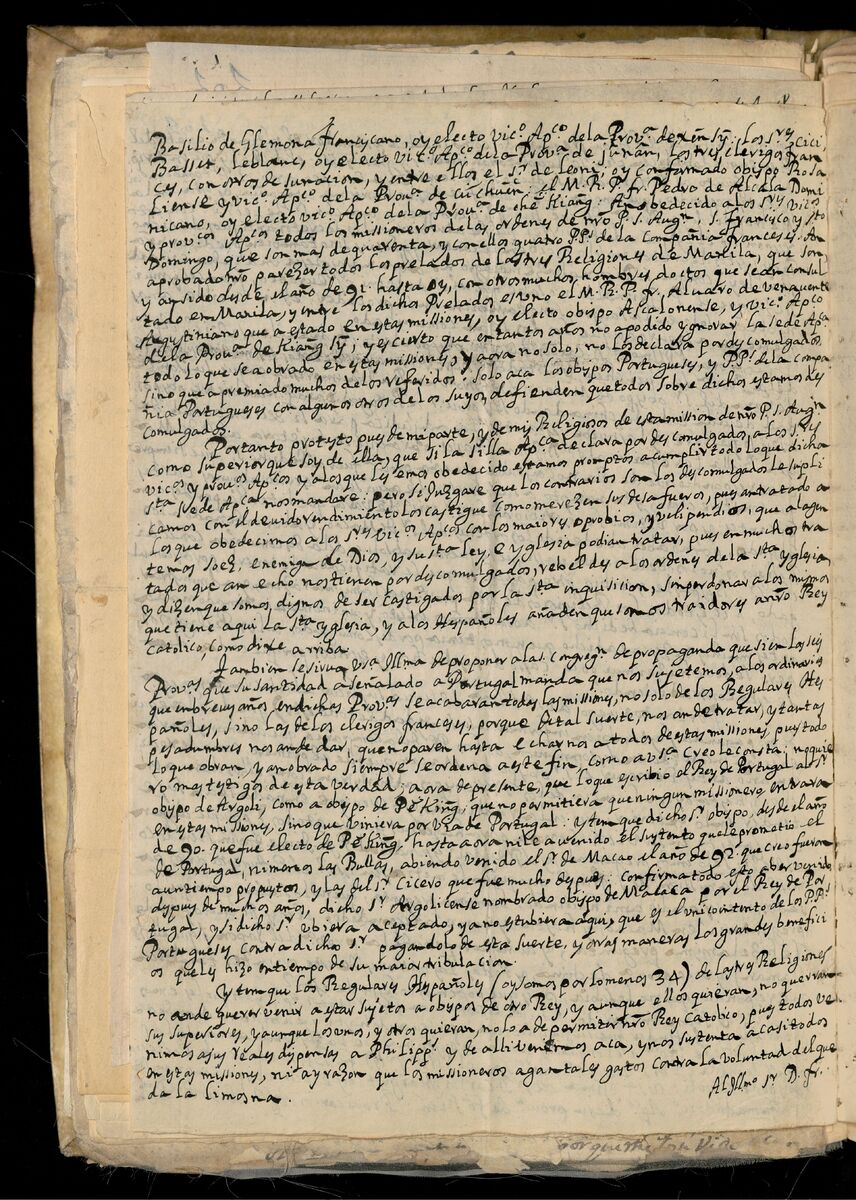 Basilio de Glemona Franciscano, oy electo vicº Apcº de la Provª de xén sȳ: los srˢ Cici,
Basset, Leblanc, oy electo vicº Apcº de la Provª de junán, los tres clerigos fran
ces, con otros de su nacion, y entre ellos el sʳ de leoni, oy confirmado obispo Rosa
liense y vicº Apcº de la Provª de çu chuén: el M. R. P. fr. Pedro de Alcala Domi
nicano, oy electo vicº Apcº de la Provª de ché Kiañg: An obedecido a los srˢ vicˢ
y provᶜᵒˢ Apᶜᵒˢ todos los missioneros de las ordenes de nro P. S. Augⁿ, S. Francisco y sto
Domingo, que son mas de quarenta, y con ellos quatro PPˢ de la Compañia franceses. An
aprobado nro parezer todos los prelados de las tres Religiones de Manila, que son,
y an sido desde el año de 92. hasta oy, con otros muchos hombres doctos que se an consul
tado en Manila, y entre los dichos Prelados es uno el M. R. P. fr. Alvaro de venavente
Agustiniano que a estado en estas missiones, oy electo obispo Ascalonense, y vicº Apcº
de la Provª de Kiañg sȳ; y es cierto que en tantos años no a podido ygnorar la sede Apᶜᵃ
todo lo que se a obrado en estas missiones, y aora no solo, no los declara por descomulgados,
sino que a premiado muchos de los referidos: solo aca los obispos Portugueses, y PPˢ de la compa
ñia Portugueses con algunos otros de los suyos, defienden que todos sobre dichos estamos des
comulgados.
Por tanto protesto pues de mi parte, y de mis Religiosos de esta mission de nro P. S. Augⁿ
como superior que soy de ella, que si la silla Apᶜᵃ declara por descomulgados, a los srˢ
vicᵒˢ y provᵒˢ Apᶜᵒˢ y a los que les emos obedecido estamos promptos a cumplir todo lo que dicha
stª Sede Apᶜᵃ nos mandare: pero si Juzgare que los contrarios son los descomulgados le supli
camos con el devido rendimiento los castigue como merezen sus desafueros, pues an tratado a
los que obedecimos a los srˢ vicˢ Apᶜᵒˢ con los maiores oprobios, y vilipendios, que a la gen
te mas soez, enemiga de Dios, y su sta ley, e yglesia podian tratar, pues en muchos tra
tados que an echo nos tienen por descomulgados, rebeldes a los ordenes de la sta yglesia,
y dizen que somos, dignos de ser castigados por la sta inquisicion, sin perdonar a los mismos
que tiene aqui la stª yglesia, y a los Hespañoles añaden que somos traidores a nro Rey
Catolico, como dixe arriba.
Tambien se sirva vsª Illma de proponer a la s. congregⁿ de propaganda que si en las seis
Provˢ que su santidad a señalado a Portugal manda que nos sujetemos, a los ordinarios
que en breves años, en dichas Provˢ se acabaran todas las missiones, no solo de los Regulares Hes
pañoles, sino las de los clerigos franceses; porque de tal suerte, nos an de tratar, y tantas
pesadumbres nos an de dar, que no paren hasta echarnos a todos de estas missiones, pues todo
lo que obran, y an obrado siempre se ordena a este fin, como a vsª creo le consta; no quie
ro mas testigos de esta verdad; aora de presente, que lo que escribio el Rey de Portugal al sʳ
obispo de Argoli, como a obispo de Pé Kiñg, que no permitiera que ningun missionero entrara
en estas missiones, sino que viniera por via de Portugal: yten que dicho sʳ obispo, desde el año
de 90. que fue electo de Pé Kiñg, hasta aora ni le a venido el sustento que le prometio el
de Portugal, ni menos las Bullas, abiendo venido el sʳ de Macao el año de 92. que creo fueron
a un tiempo propuestos, y las del sʳ Cicero que fue mucho despues: confirma todo esto aber venido
despues de muchos años, dicho sʳ Argolicense nombrado obispo de Malaca por el Rey de Por
tugal, y si dicho sʳ ubiera aceptado, ya no estubiera aqui, que es el unico intento de los PPˢ
Portugueses contra dicho sʳ pagandolo de esta suerte, y otras maneras los grandes benefici
os que les hizo en tiempo de su maior tribulacion.
Yten que los Regulares Hespañoles (oy somos por lo menos 34) de las tres Religiones
no an de querer venir a estar sujetos a obispos de otro Rey, y aunque ellos quieran, no querran
sus superiores, y aunque los unos, y otros quieran, no lo a de permitir nro Rey Catolico, pues todos ve
nimos a sus reales dispensas a Philippˢ y de alli venimos aca, y nos sustenta a casi todos
en estas missiones, ni ay razon que los missioneros agan tales gastos contra la voluntad del que
da la limosna.
Al Illmo sʳ D. fr.